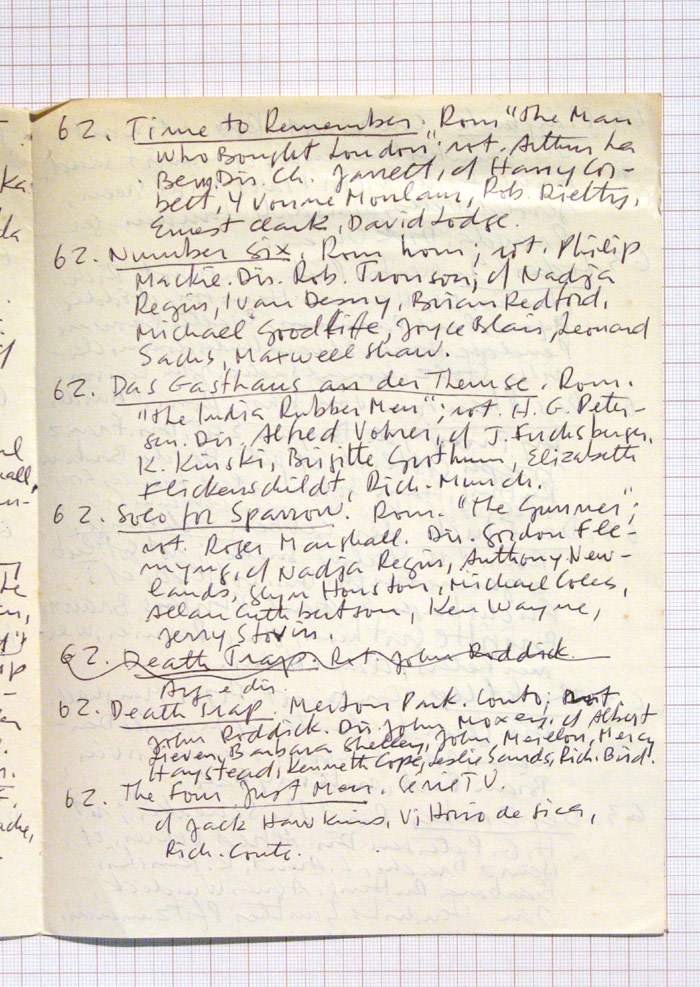 62. Time to Remember. Rom "The Man
Who Bought London"; rot. Arthur La
Bern. Dis. Ch. Jarrett, cf Harry Cor-
bett, Yvonne Monlaur, Rob. Rietty,
Ernest Clark, David Lodge.
62. Number Six, Rom hom; rot. Philip
Mackie. Dis. Rob. Tronson, cf Nadja
Regin, Ivan Desny, Brian Redford,
Michael Goodliffe, Joyce Blair, Leonard
Sachs, Maxweel Shaw.
62. Das Gasthaus an der Themse. Rom.
"The India Rubber Men"; rot. H. G. Peter-
sen. Dir. Alfred Vohrer, cf J. Fuchsberger,
K. Kinski, Brigitte Grothum, Elizabeth
Flickenschildt, Rich. Munch.
62. Solo for Sparrow. Rom. "The Gunner";
rot. Roger Marshall. Dir. Gordon Fle-
myng, cf Nadja Regin, Anthony New-
lands, Glyn Houston, Michael Coles,
Allan Cuthbertson, Ken Wayne,
Jerry Stovin.
62. Death Trap. Rot. John Roddick.
Arg e dir
62. Death Trap. Merton Park. Conto; rot
John Roddick. Dir. John Moxey, cf Albert
Lieven, Barbara Shelley, John Meillon, Mercy
Haystead, Kenneth Cope, Leslie Sands, Rich. Bird.
62. The Four Just Men, série TV
cf Jack Hawkins, Vittorio de Sica,
Rich. Conte.